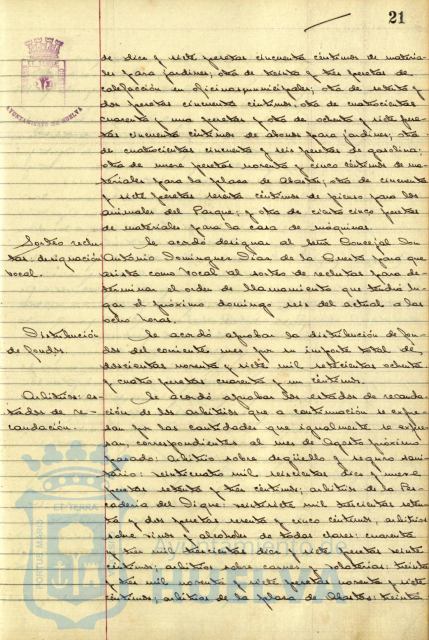 21
AYUNTAMIENTO DE HUELVA
de diez y siete pesetas cincuenta céntimos de materia-
les para jardines; otra de treinta y tres pesetas de
calefacción en oficinas municipales; otra de setenta y
dos pesetas cincuenta céntimos; otra de cuatrocientas
cuarenta y una pesetas y otra de ochenta y siete pese-
tas cincuenta céntimos de abonos para jardines; otra
de cuatrocientas cincuenta y seis pesetas de gasolina;
otra de nueve pesetas noventa y cinco céntimos de ma-
teriales para la plaza de Abastos; otra de cincuenta
y siete pesetas sesenta céntimos de pienso para los
animales del Parque; y otra de ciento cinco pesetas
de materiales para la casa de máquinas.
Sorteo reclu-
tas: designación
vocal.
Se acordó designar al Señor Concejal Don
Antonio Domínguez Díaz de la Questa para que
asista como Vocal al sorteo de reclutas para de-
terminar el orden de llamamiento que tendrá lu-
gar el próximo domingo seis del actual a las
ocho horas.
Distribución
de fondos.
Se acordó aprobar la distribución de fon-
dos del corriente mes por su importe total de
doscientas noventa y siete mil setecientas ochenta
y cuatro pesetas cuarenta y un céntimos.
Arbitrios: es-
tados de re-
caudación.
Se acordó aprobar los estados de recauda-
ción de los arbitrios que a continuación se expre-
san por las cantidades que igualmente se expre-
san, correspondientes al mes de Agosto próximo
pasado: arbitrio sobre degüello y seguro sani-
tario: veinticuatro mil seiscientas diez y nueve
pesetas setenta y tres céntimos; arbitrios de la Pes-
cadería del Dique: veintisiete mil trescientas seten-
ta y dos pesetas veinte y cinco céntimos; arbitrios
sobre vinos y alcoholes de todas clases: cuarenta
y tres mil trescientas diez y siete pesetas veinte
céntimos; arbitrios sobre carnes y volatería: treinta
y tres mil noventa y siete pesetas noventa y siete
céntimos; arbitrios de la plaza de Abastos: treinta